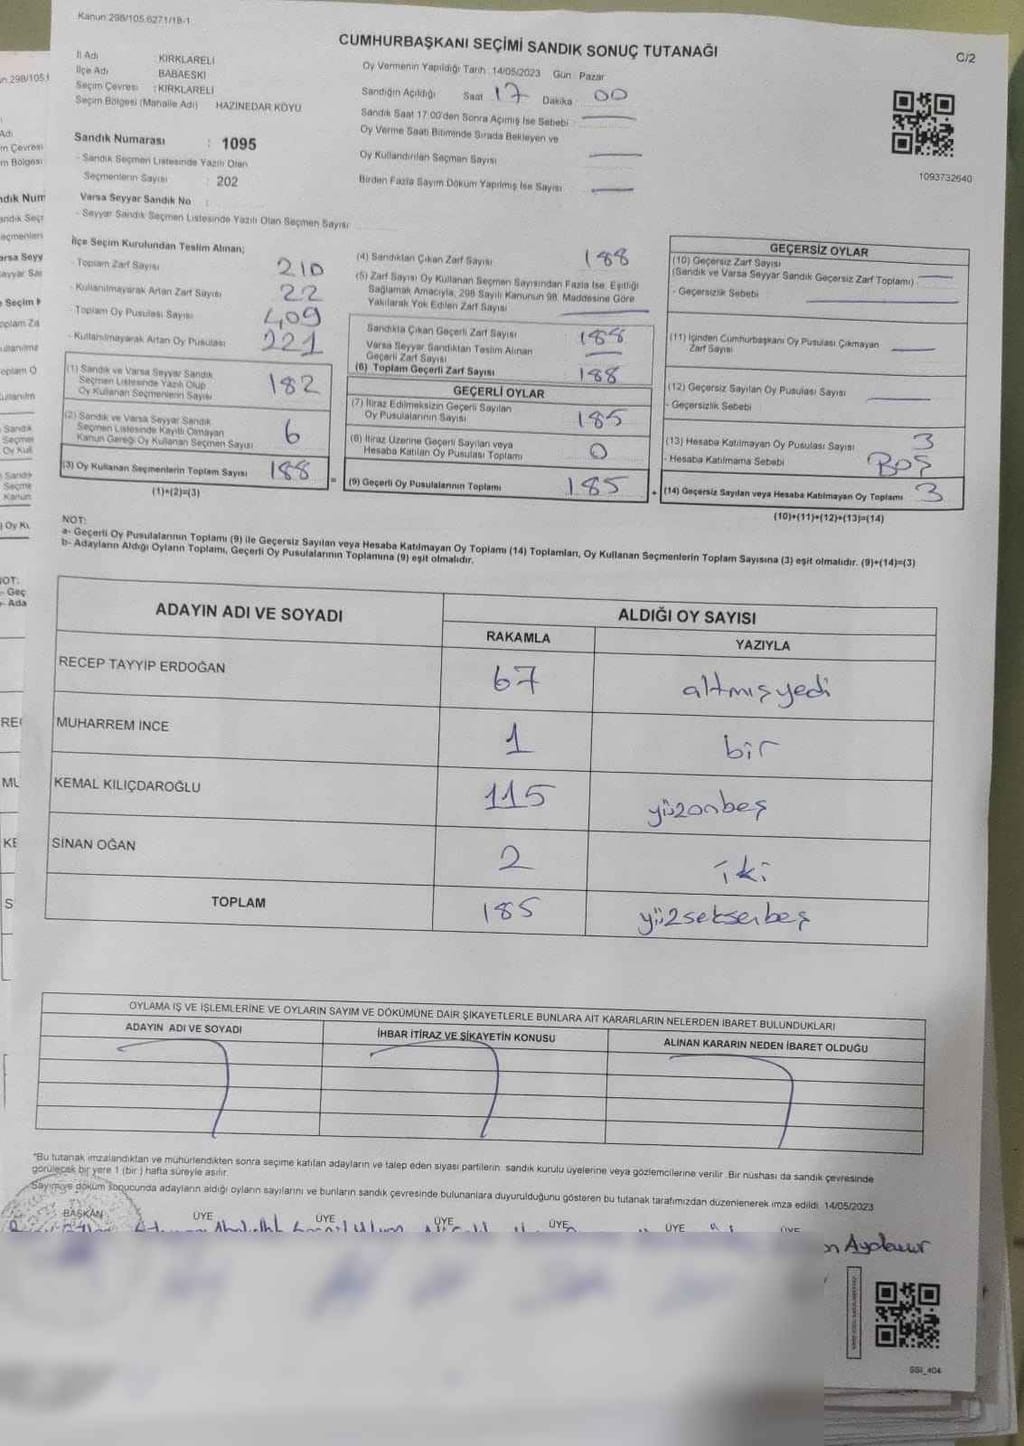 Kanun:298/105.6271/18-1
CUMHURBAŞKANI SEÇİMİ SANDIK SONUÇ TUTANAĞI
C/2
İl Adı : KIRKLARELİ
İlçe Adı : BABAESKİ
Seçim Çevresi : KIRKLARELİ
Seçim Bölgesi (Mahalle Adı) HAZINEDAR KÖYÜ
Oy Vermenin Yapıldığı Tarih :14/05/2023 Gün : Pazar
Sandığın Açıldığı Saat 17 Dakika 00
Sandık Saat 17:00'den Sonra Açımış İse Sebebi
Oy Verme Saati Bitiminde Sırada Bekleyen ve
Oy Kullandırılan Seçmen Sayısı
Birden Fazla Sayım Döküm Yapılmış İse Sayısı
1093732640
Sandık Numarası : 1095
- Sandık Seçmen Listesinde Yazılı Olan
Seçmenlerin Sayısı : 202
Varsa Seyyar Sandık No :
- Seyyar Sandık Seçmen Listesinde Yazılı Olan Seçmen Sayısı :
İlçe Seçim Kurulundan Teslim Alınan;
- Toplam Zarf Sayısı 210
- Kullanılmayarak Artan Zarf Sayısı 22
- Toplam Oy Pusulası Sayısı 409
- Kullanılmayarak Artan Oy Pusulası 221
(1) Sandık ve Varsa Seyyar Sandık
Seçmen Listesinde Yazılı Olup
Oy Kullanan Seçmenlerin Sayısı 182
(2) Sandık ve Varsa Seyyar Sandık
Seçmen Listesinde Kayıtlı Olmayan
Kanun Gereği Oy Kullanan Seçmen Sayısı 6
(3) Oy Kullanan Seçmenlerin Toplam Sayısı 188
(1)+(2)=(3)
(4) Sandıktan Çıkan Zarf Sayısı 188
(5) Zarf Sayısı Oy Kullanan Seçmen Sayısından Fazla İse, Eşitliği
Sağlamak Amacıyla, 298 Sayılı Kanunun 98. Maddesine Göre
Yakılarak Yok Edilen Zarf Sayısı
Sandıkta Çıkan Geçerli Zarf Sayısı 188
Varsa Seyyar Sandıktan Teslim Alınan
Geçerli Zarf Sayısı
(6) Toplam Geçerli Zarf Sayısı 188
GEÇERLİ OYLAR
(7) İtiraz Edilmeksizin Geçerli Sayılan
Oy Pusulalarının Sayısı 185
(8) İtiraz Üzerine Geçerli Sayılan veya
Hesaba Katılan Oy Pusulası Toplamı 0
= (9) Geçerli Oy Pusulalarının Toplamı 185
GEÇERSİZ OYLAR
(10) Geçersiz Zarf Sayısı
(Sandık ve Varsa Seyyar Sandık Geçersiz Zarf Toplamı)
- Geçersizlik Sebebi
(11) İçinden Cumhurbaşkanı Oy Pusulası Çıkmayan
Zarf Sayısı
(12) Geçersiz Sayılan Oy Pusulası Sayısı
- Geçersizlik Sebebi
(13) Hesaba Katılmayan Oy Pusulası Sayısı 3
- Hesaba Katılmama Sebebi BOŞ
+ (14) Geçersiz Sayılan veya Hesaba Katılmayan Oy Toplamı 3
(10)+(11)+(12)+(13)=(14)
NOT:
a- Geçerli Oy Pusulalarının Toplamı (9) ile Geçersiz Sayılan veya Hesaba Katılmayan Oy Toplamı (14) Toplamları, Oy Kullanan Seçmenlerin Toplam Sayısına (3) eşit olmalıdır. (9)+(14)=(3)
b- Adayların Aldığı Oyların Toplamı, Geçerli Oy Pusulalarının Toplamına (9) eşit olmalıdır.
ADAYIN ADI VE SOYADI
ALDIĞI OY SAYISI
RAKAMLA YAZIYLA
RECEP TAYYİP ERDOĞAN 67 altmışyedi
MUHARREM İNCE 1 bir
KEMAL KILIÇDAROĞLU 115 yüzonbeş
SİNAN OĞAN 2 iki
TOPLAM 185 yüzseksenbeş
OYLAMA İŞ VE İŞLEMLERİNE VE OYLARIN SAYIM VE DÖKÜMÜNE DAİR ŞİKAYETLERLE BUNLARA AİT KARARLARIN NELERDEN İBARET BULUNDUKLARI
ADAYIN ADI VE SOYADI İHBAR İTİRAZ VE ŞİKAYETİN KONUSU ALINAN KARARIN NEDEN İBARET OLDUĞU
"Bu tutanak imzalandıktan ve mühürlendikten sonra seçime katılan adayların ve talep eden siyasi partilerin, sandık kurulu üyelerine veya gözlemcilerine verilir. Bir nüshası da sandık çevresinde
görülecek bir yere 1 (bir ) hafta süreyle asılır.
Sayım ve döküm sonucunda adayların aldığı oyların sayılarını ve bunların sandık çevresinde bulunanlara duyurulduğunu gösteren bu tutanak tarafımızdan düzenlenerek imza edildi. 14/05/2023
BAŞKAN ÜYE ÜYE ÜYE ÜYE ÜYE ÜYE
SSI_404